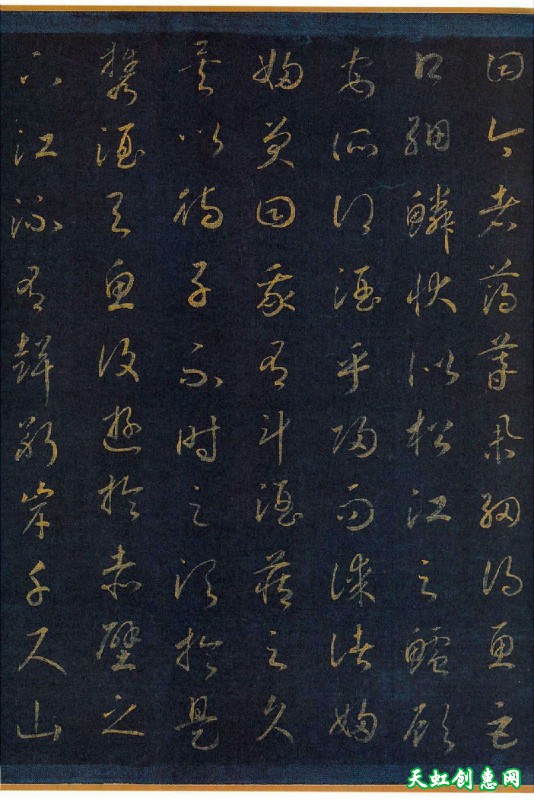 曰今者薄暮舉網得魚巨
口細鱗狀似松江之鱸顧
安所得酒乎歸而謀諸婦
婦曰我有斗酒藏之久
矣以待子不時之須於是
攜酒與魚復遊於赤壁之
下江流有聲斷岸千尺山
天虹创惠网